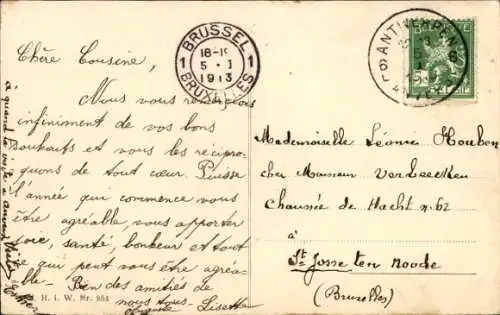 Chère Cousine,
Nous vous remercions
infiniment de vos bons
souhaits et vous les récipro-
quons de tout cœur. Puisse
l'année qui commence vous
être agréable, vous apporter
joie, santé, bonheur et tout
ce qui peut vous être agréa-
ble. Bien des amitiés de
nous tous. Lisette
H. i. W. Nr. 951
à quand
BRUSSEL
1 1
18-19
5 · I
1913
BRUXELLES
ANTWERPEN 6
BELGIQUE
5
Mademoiselle Léonie Houbon
chez Monsieur Verbeecken
Chaussée de Haecht n. 62
à
St Josse ten noode
(Bruxelles)